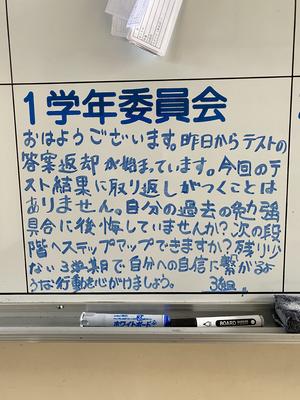 1学年委員会
おはようございます。昨日からテストの
答案返却が始まっています。今回のテ
スト結果に取り返しがつくことは
ありません。自分の過去の勉強
具合に後悔していませんか？次の段
階へステップアップできますか？残り少
ない3学期目で自分への自信に繋がるよ
うな行動を心がけましょう。 3組
ホワイトボード
BOARD